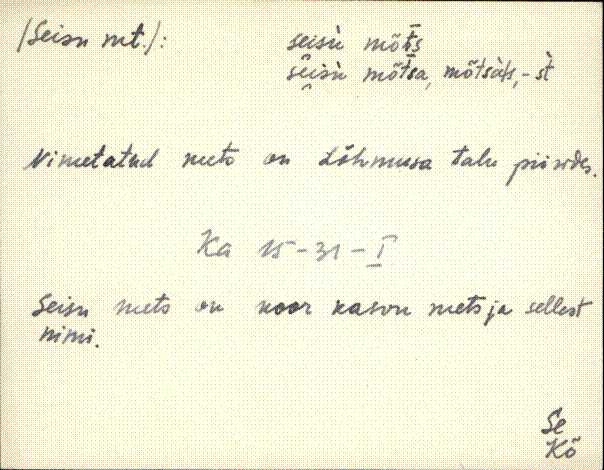 /Seisu mt./: seisù mõt̄s
sèisù mõt̄sa, mõtsàl̀s, -st̀
Nimetatud mets on Lõhmusa talu piirides.
Ka 15-31-I
Seisu mets on noor kasvu mets ja sellest
nimi.
Se
Kõ